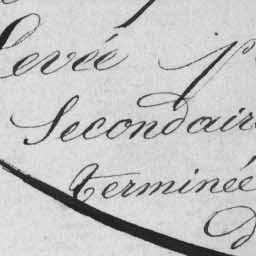 Levée p
Secondair
terminée
D